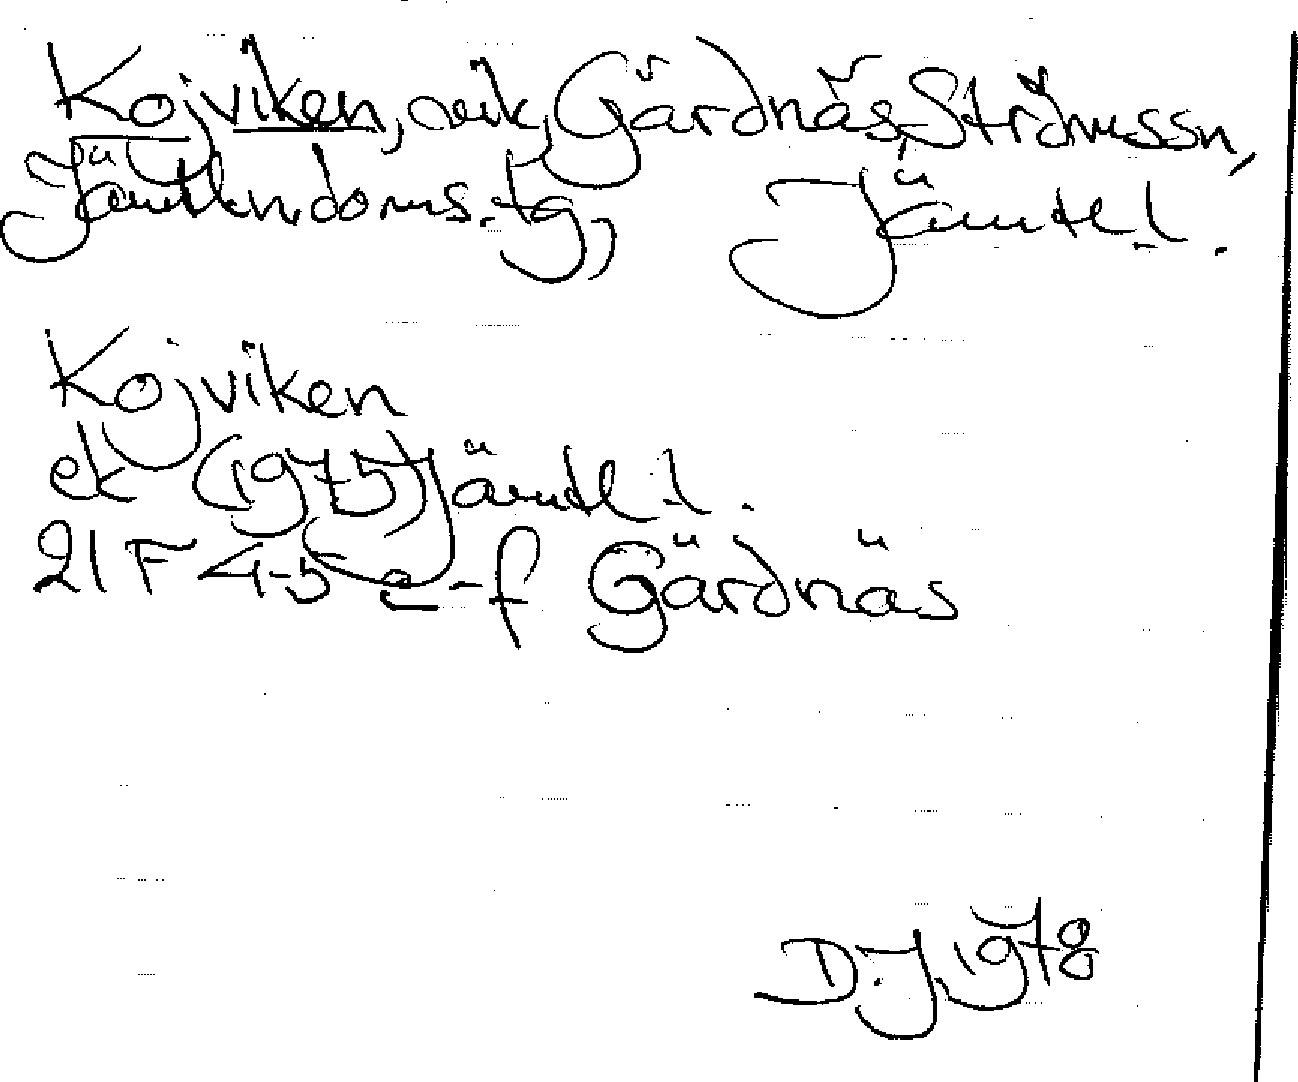 Kojviken, avik, Gärdnäs, Ströms sn,
Jämtl.n.doms.tg, Jämtl.
Kojviken
ek (1975) Jämtl.
21F 4-5 e-f Gärdnäs
D.J. 1978